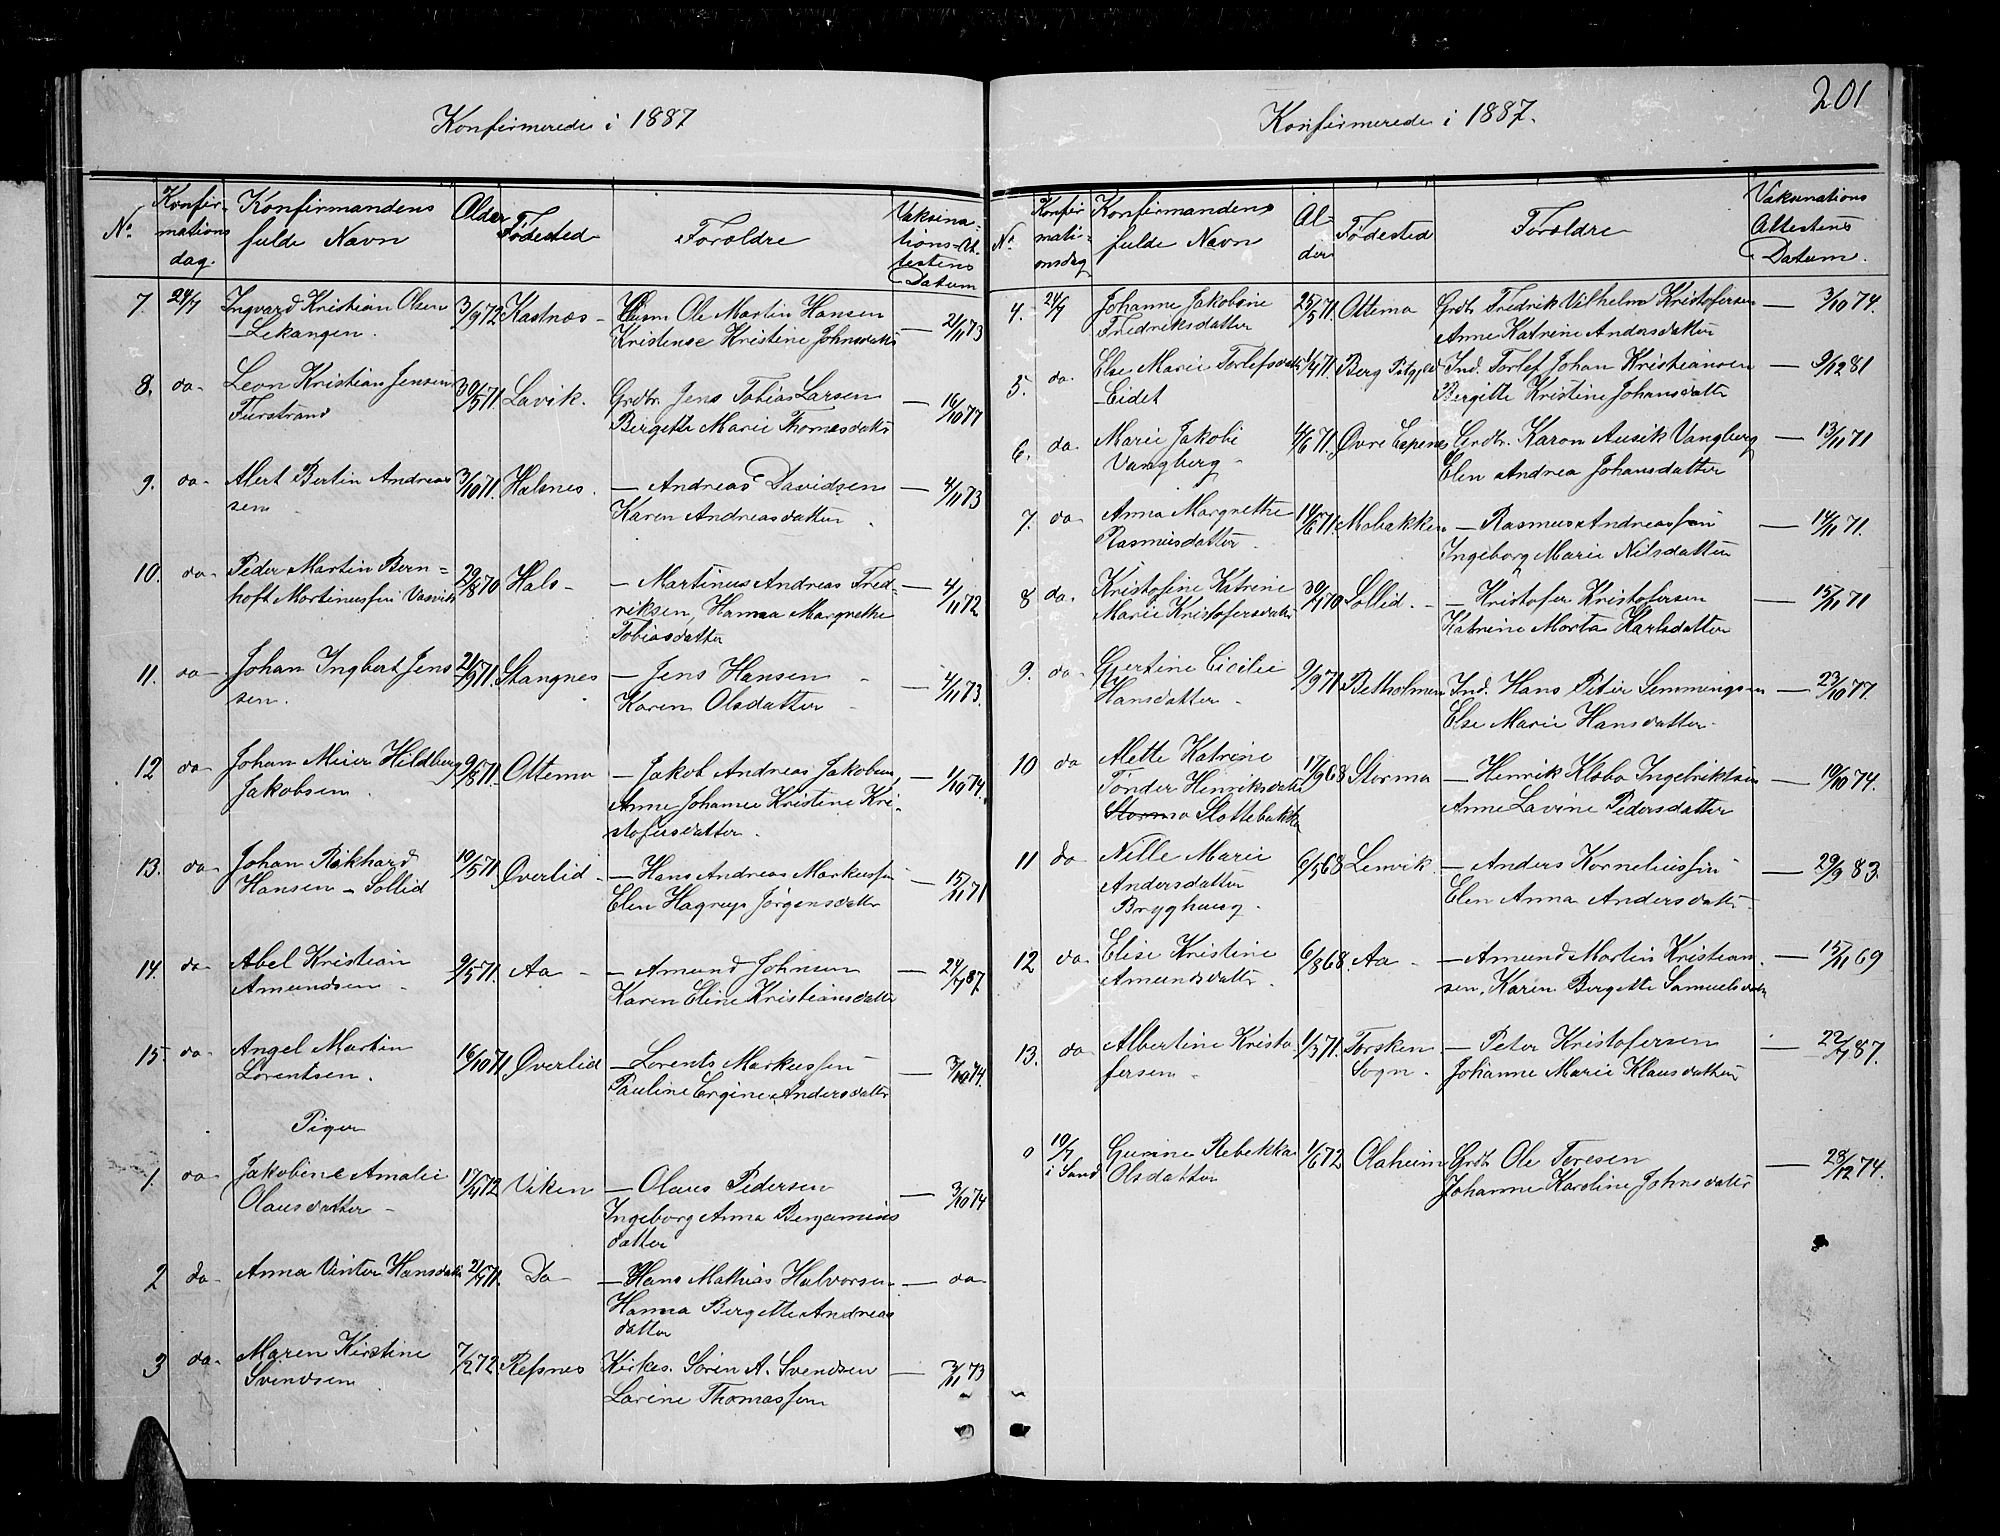 Konfirmerede i 1887
No.
Konfir-
mations
dag.
Konfirmandens
fulde Navn
Alder
Fødested
Forældre
Vaksina-
tions-At-
testens
Datum
7. 24/7 Ingvard Kristian Olsen 3/9 72 Kastnæs - Husm Ole Martin Hansen — 2/11 73
Lekangen. Kristense Kristine Johnsdatter
8. do- Leon Kristian Jensen 30/5 71. Lavik. Grdbr. Jens Tobias Larsen — 16/10 77
Furstrand Bergette Marie Thomasdatter
9. do- Alert Bertin Andreas 3/10 71. Halsnes. — Andreas Davidsen — 4/11 73
sen Karen Andreasdatter
10. do- Peder Martin Bern= 29/8 70 Hals- — Martinus Andreas Fred- — 4/11 72
hoft Martinussen Vasvik riksen, Hanna Margrethe
Tobiasdatter
11. do- Johan Ingbert Jens 21/5 71. Stangnes — Jens Hansen — 4/11 73.
sen. Karen Olsdatter
12 do- Johan Meier Hildberg 9/8 71. Ottemo — Jakob Andreas Jakobsen, — 1/10 74.
Jakobsen. Anne Johanna Kristine Kri-
stofersdatter.
13. do- Johan Rikhard 19/5 71 Øverlid- — Hans Andreas Markussen — 15/11 71
Hansen - Sollid Elen Hagrup Jørgensdatter
14. do- Abel Kristian 9/5 71. Aa - — Amund Johnsen — 24/7 87.
Amundsen - Karen Eline Kristiansdatter
15. do- Angel Martin 16/10 71 Øverlid — Lorents Markussen — 3/10 74.
Lorentsen. Pauline Ergine Andersdatter
Piger
1. do- Jakobine Amalie 17/4 72 Viken — Olaus Pedersen — 3/10 74
Olausdatter - Ingeborg Anna Benjamins
datter
2 do- Anna Vinter Hansdatter 21/7 71. Do — Hans Mathias Halvorsen — do
Hanna Bergette Andreas
datter
3 do- Maren Kirstine 7/2 72. Refsnes Kirkes. Søren A. Svendsen — 2/11 73
Svendsen Lavine Thomassen
201
Konfirmerede i 1887.
No.
Konfir
mati-
onsdag
Konfirmandens
fulde Navn
Al-
der
Fødested
Forældre
Vaksinations
Attestens
Datum.
4. 24/7 Johanne Jakobine 25/5 71. Ottemo Grdbr Fredrik Vilhelm Kristofersen — 3/10 74.
Fredriksdatter Anne Katrine Andersdatter
5. do. Else Marie Torlefsdatter 1/4 71. Berg Prgjeld Ind. Torlef Johan Kristiansen — 9/12 81
Eidet Bergitte Kristine Johansdatter
6. do. Marie Jakobe 4/6 71. Øvre Espenes Grdbr. Karon Ausik Vangberg — 13/11 71
Vangberg - Elen Andrea Johansdatter
7. do- Anna Margrethe 14/6 71. Mobakken — Rasmus Andreassen — 14/11 71.
Rasmusdatter. Ingeborg Marie Nilsdatter
8 do. Kristofine Katrine 30/11 70 Sollid. — Kristofer Kristofersen — 15/11 71
Marie Kristofersdatter Katrine Marta Karlsdatter
9. do Gjertine Cicilie 9/9 71 Betholmen Ind. Hans Peter Semmingsen — 23/10 77.
Hansdatter. Else Marie Hansdatter.
10 do Mette Katrine 17/9 68 Stormo — Henrik Klæbo Ingebriktsen — 19/10 74.
Tønder Henriksdatter Anne Lavine Pedersdatter
Stormo Slottebakken
11 do Nille Marie 6/5 68 Lenvik. — Anders Korneliussen — 29/9 83.
Andersdatter Elen Anna Andersdatter
Bryghaug.
12 do- Elise Kristine 6/8 68. Aa- — Amund Martin Kristian- — 15/11 69
Amundsdatter. sen, Karen Bergette Samuelsdatter
13. do Albertine Kristo 1/3 71. Torsken — Peter Kristofersen — 22/7 87.
fersen - Sogn. Johanne Marie Klausdatter
0 10/7 Gurine Rebekka 1/6 72 Olaheim Grdbr Ole Toresen — 28/12 74.
i Sand Olsdatter Johanne Karoline Johnsdatter